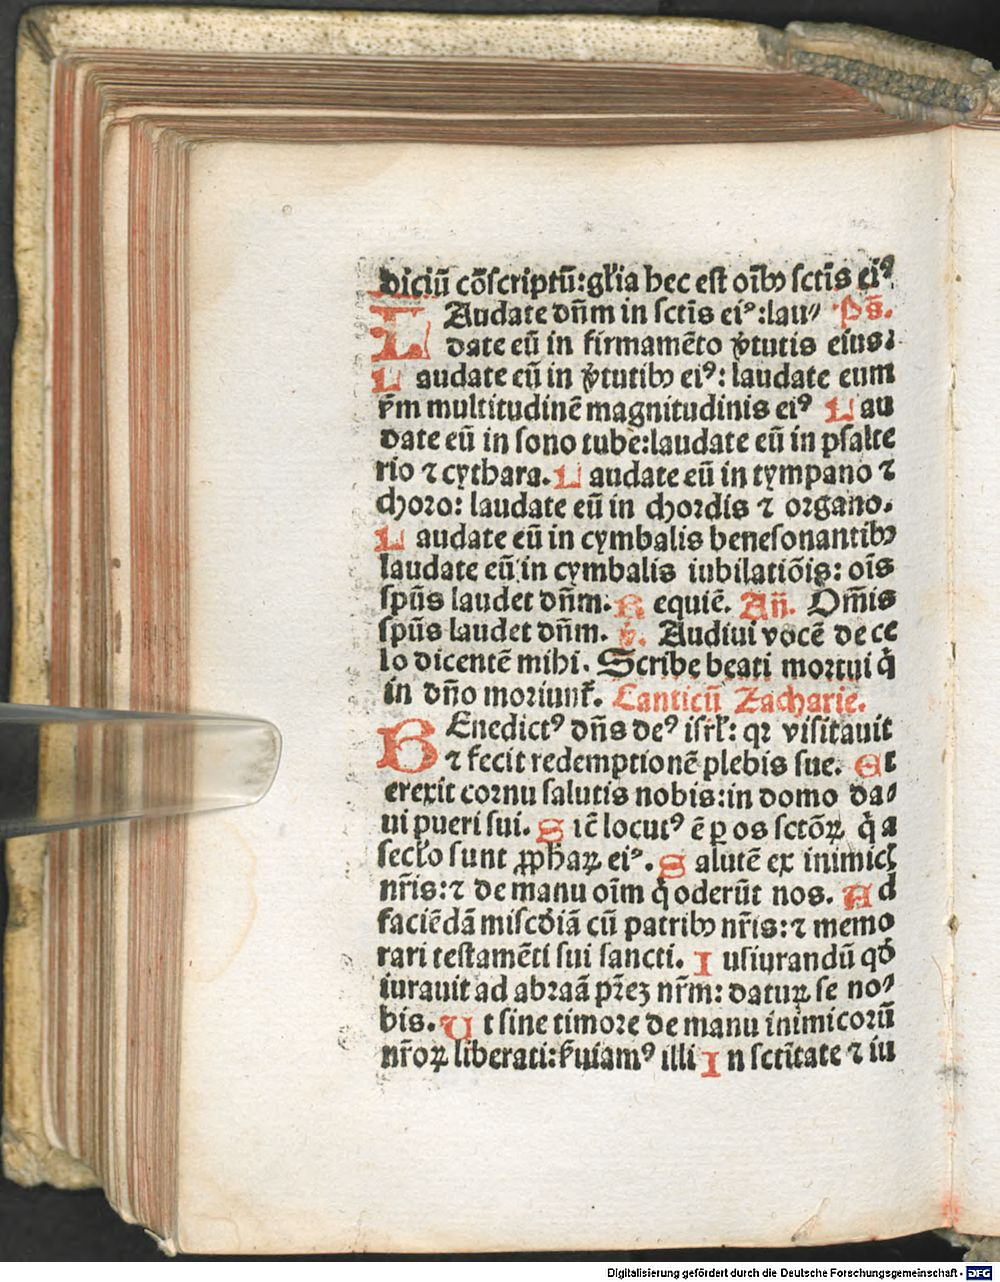 diciū cōscriptū:gl̄ia hec est oīb⁹ sctīs ei⁹.
LAudate dn̄m in sctīs ei⁹:lau⸗ Ps̄.
date eū in firmamēto v̄tutis eius:
Laudate eū in v̄tutib⁹ ei⁹: laudate eum
s̄m multitudinē magnitudinis ei⁹ Lau
date eū in sono tube:laudate eū in psalte
rio ⁊ cythara. Laudate eū in tympano ⁊
choro: laudate eū in chordis ⁊ organo.
Laudate eū in cymbalis benesonantib⁹
laudate eū in cymbalis iubilatiōis: oīs
spūs laudet dn̄m. Requiē. An̄. Om̄is
spūs laudet dn̄m. v̄. Audiui vocē de ce
lo dicentē mihi. Scribe beati mortui q̇
in dn̄o moriunt᷑. Canticū Zacharie.
BEnedict⁹ dn̄s de⁹ isrl̄: qꝛ visitauit
⁊ fecit redemptionē plebis sue. Et
erexit cornu salutis nobis:in domo da⸗
ui pueri sui. Sic̄ locut⁹ ē ꝑ os sctōꝝ q̇ a
secl̄o sunt ꝓphaꝝ ei⁹. Salutē ex inimicꝭ
nr̄is:⁊ de manu oīm q̇ oderūt nos. Ad
faciēdā misc̄diā cū patrib⁹ nr̄is:⁊ memo
rari testamēti sui sancti. Iusiurandū qd̄
iurauit ad abraā pr̄eꝫ nr̄m: daturꝝ se no⸗
bis. Ut sine timore de manu inimicorū
nr̄oꝝ liberati:s̄uiam⁹ illi In sctītate ⁊ iu
Digitalisierung gefördert durch die Deutsche Forschungsgemeinschaft - DFG